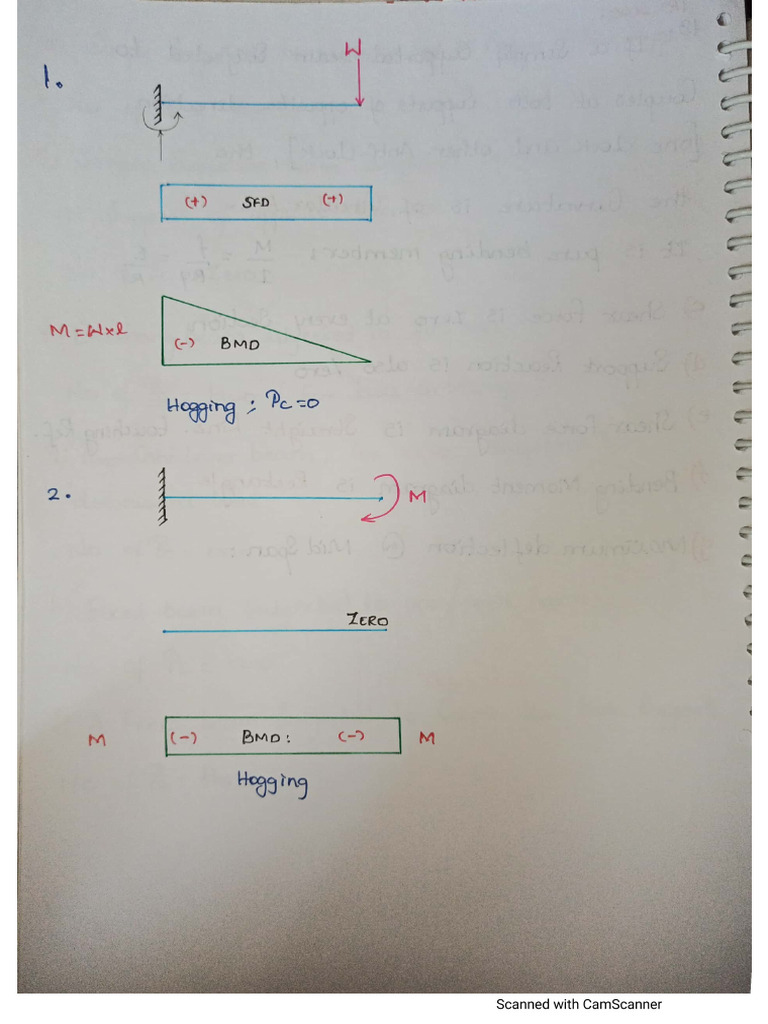 1.
W
(+) SFD (+)
M = W×l
(-) BMD
Hogging ; Pc = 0
2.
M
ZERO
M (-) BMD: (-) M
Hogging
Scanned with CamScanner